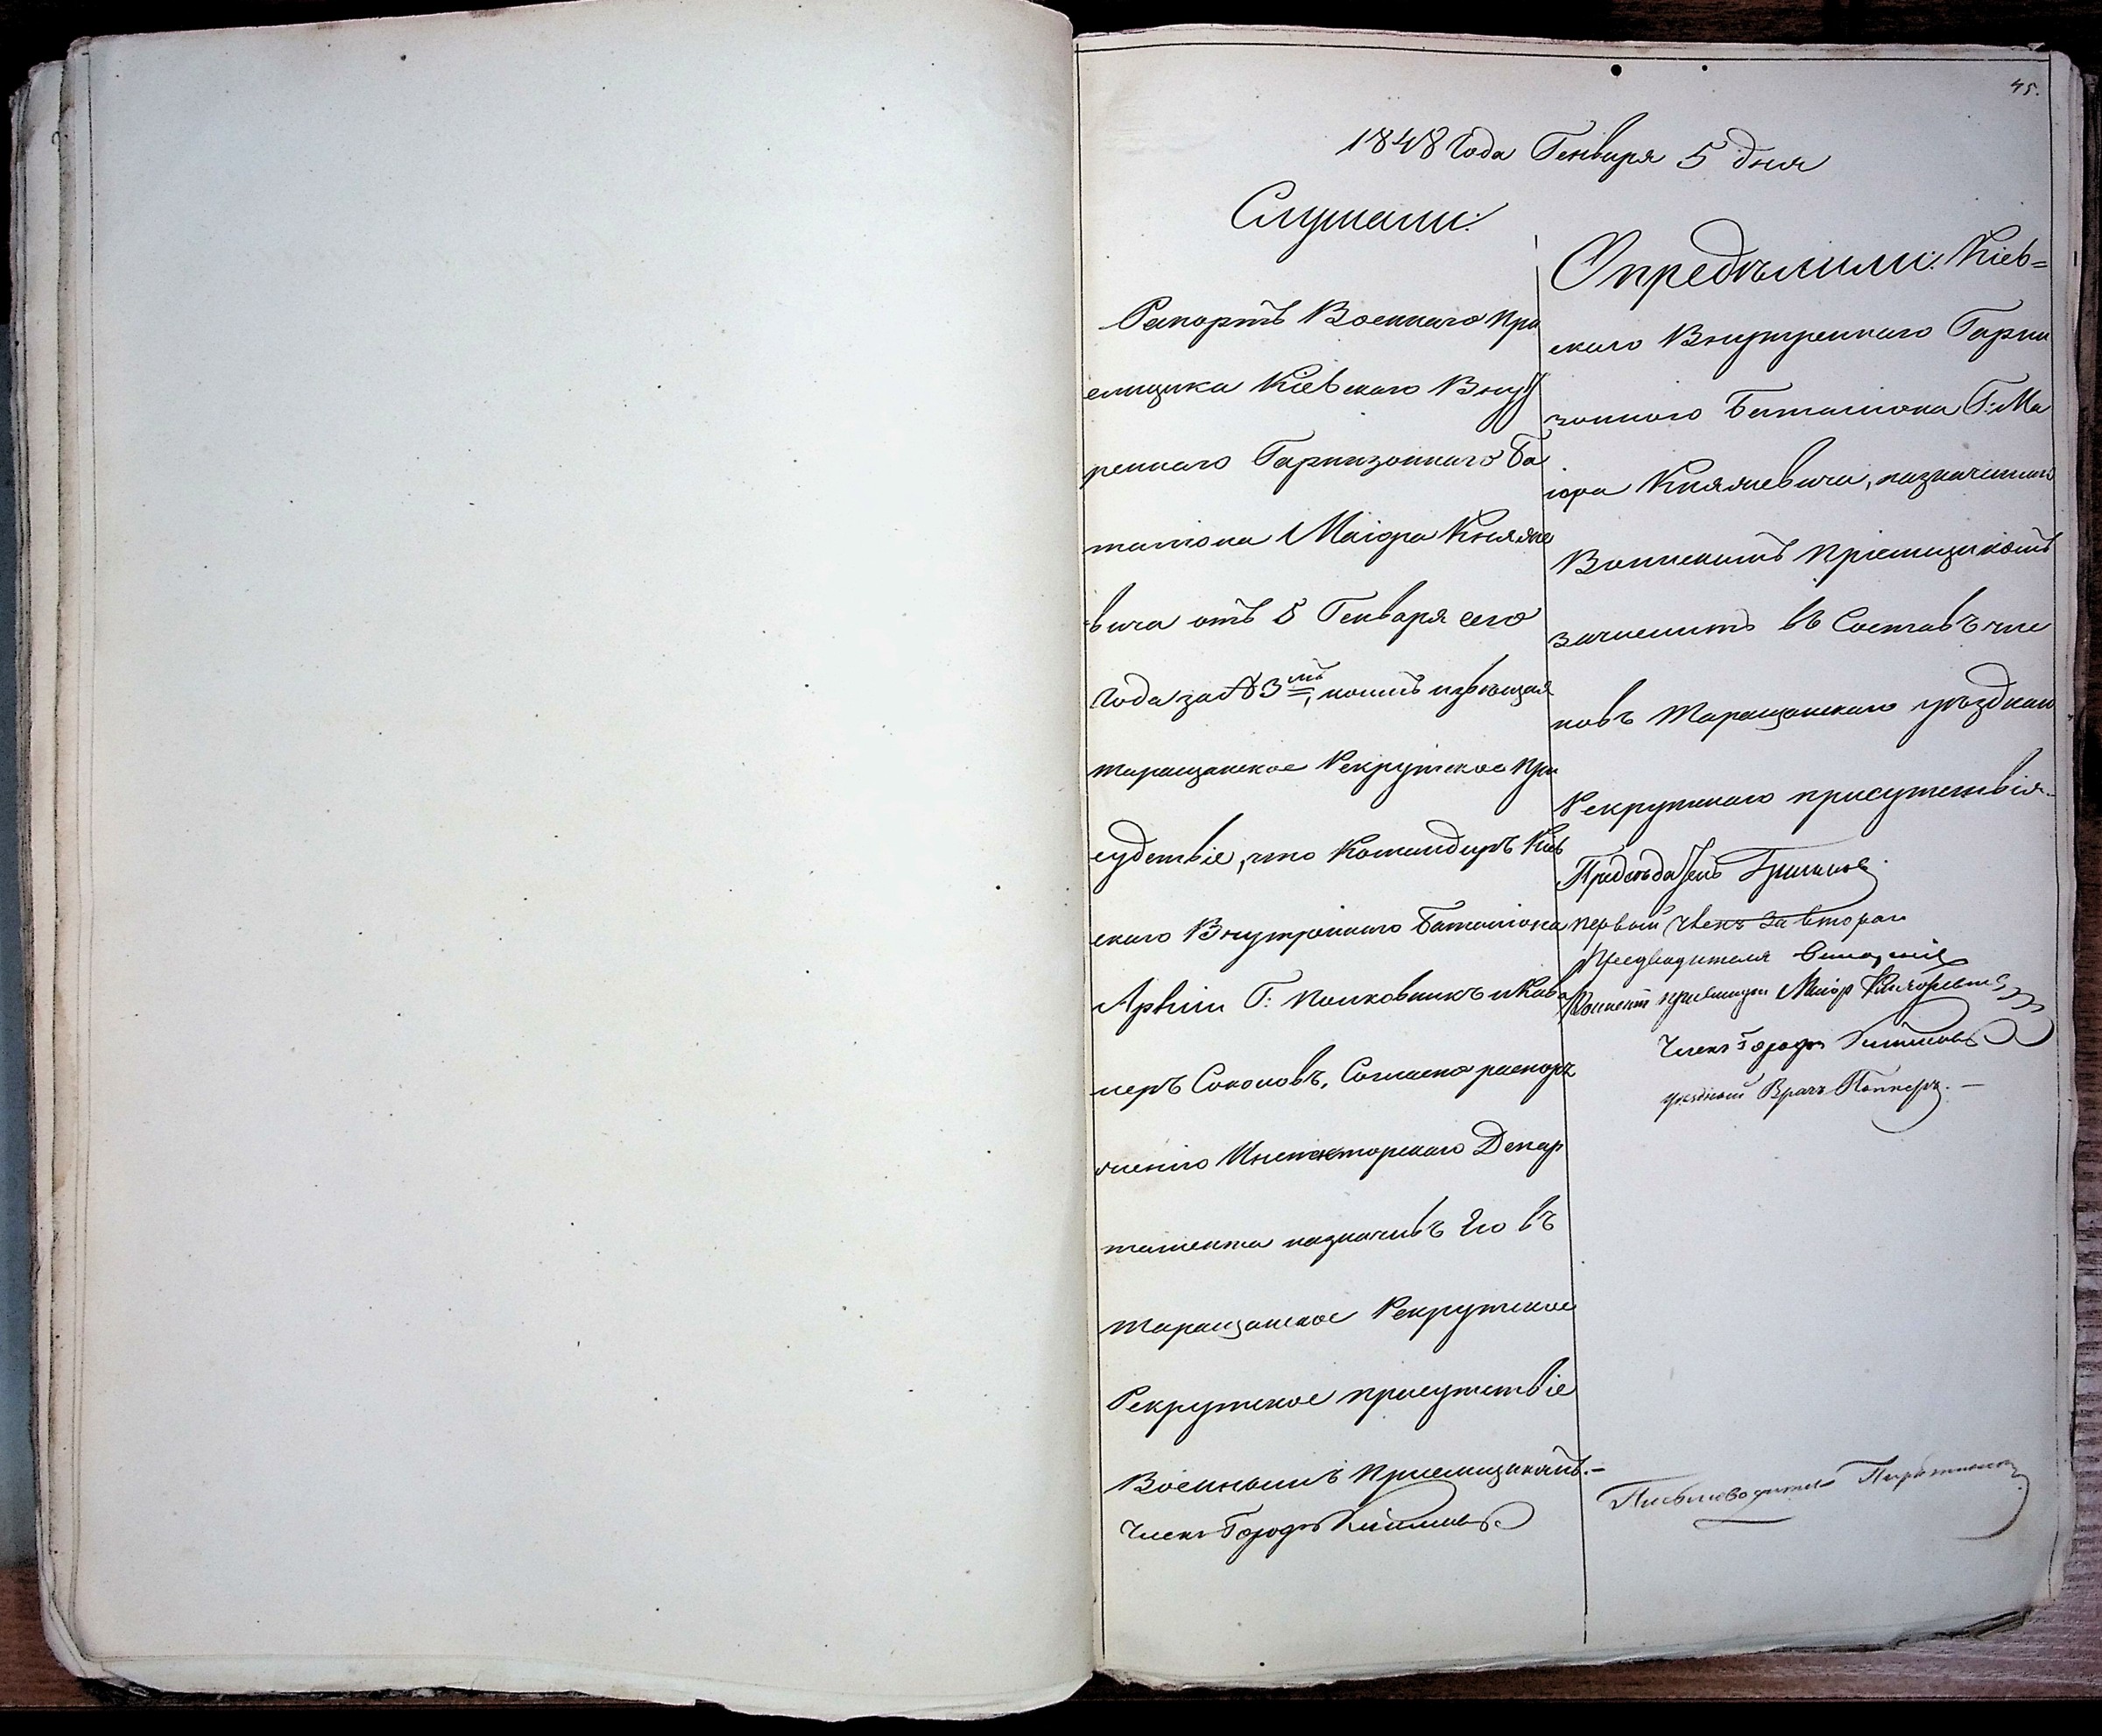 45.
1848 Года Генваря 5 дня
Слушали:
Рапортъ Военнаго Прі
емщика Кіевскаго Внут
ренняго Гарнизоннаго Ба
таліона Маіора Княже
вича отъ 5 Генваря сего
года за № 3мъ, коимъ извѣщая
таращанское Рекрутское При
судствіе, что Командиръ Кіев
скаго Внутреннаго Баталіона
Арміи Г: Полковникъ и Кава
леръ Соколовъ, Согласно распоря
женію Инспекторскаго Депар
тамента назначивъ Его въ
таращанское Рекрутское
Рекрутское присутствіе
Военнымъ Приемщикомъ.-
Членъ Город:
Опредѣлили: Кіев=
скаго Внутреннаго Гарни
зоннаго Баталіона Г: Ма
іора Княжевича, назначеннаго
Воинскимъ Пріемщикомъ
зачислить въ Составъ чле
новъ Таращанскаго уѣзднаго
Рекрутскаго присутствія.-
Предсѣдатель
первый Членъ За втораго
Предводителя
Воинскій приемщик Маіор Княжевичъ
Членъ Город:
уездный Врачъ
Письмоводитель